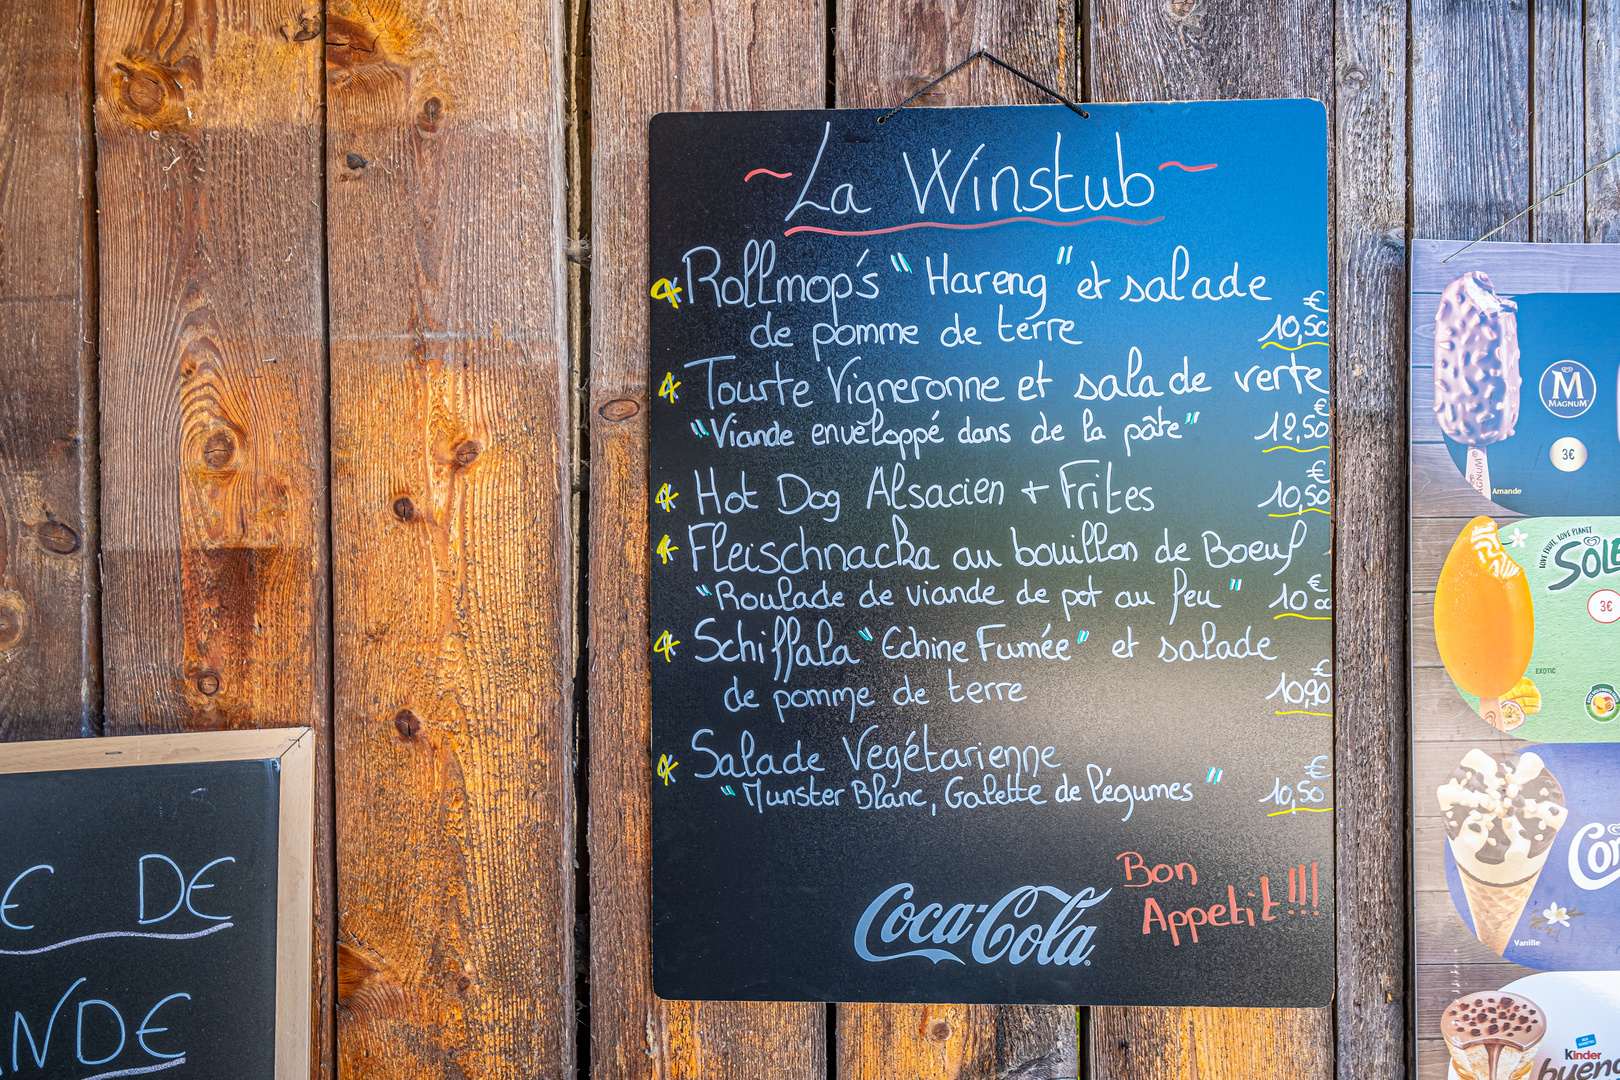 ~ La Winstub ~
Rollmop's "Hareng" et salade
de pomme de terre 10,50€
Tourte Vigneronne et salade verte
"Viande enveloppé dans de la pâte" 12,50€
Hot Dog Alsacien + Frites 10,50€
Fleischnacka au bouillon de Boeuf
"Roulade de viande de pot au feu" 10€00
Schiffala "Echine Fumée" et salade
de pomme de terre 10,90€
Salade Vegétarienne
"Munster Blanc, Galette de légumes" 10,50€
Bon
Appetit!!!
Coca-Cola
E DE
NDE
M
MAGNUM
3€
MAGNUM
Amande
LOVE FRUIT, LOVE PLANET
SOLE
3€
EXOTIC
Cor
Vanille
Kinder
bueno